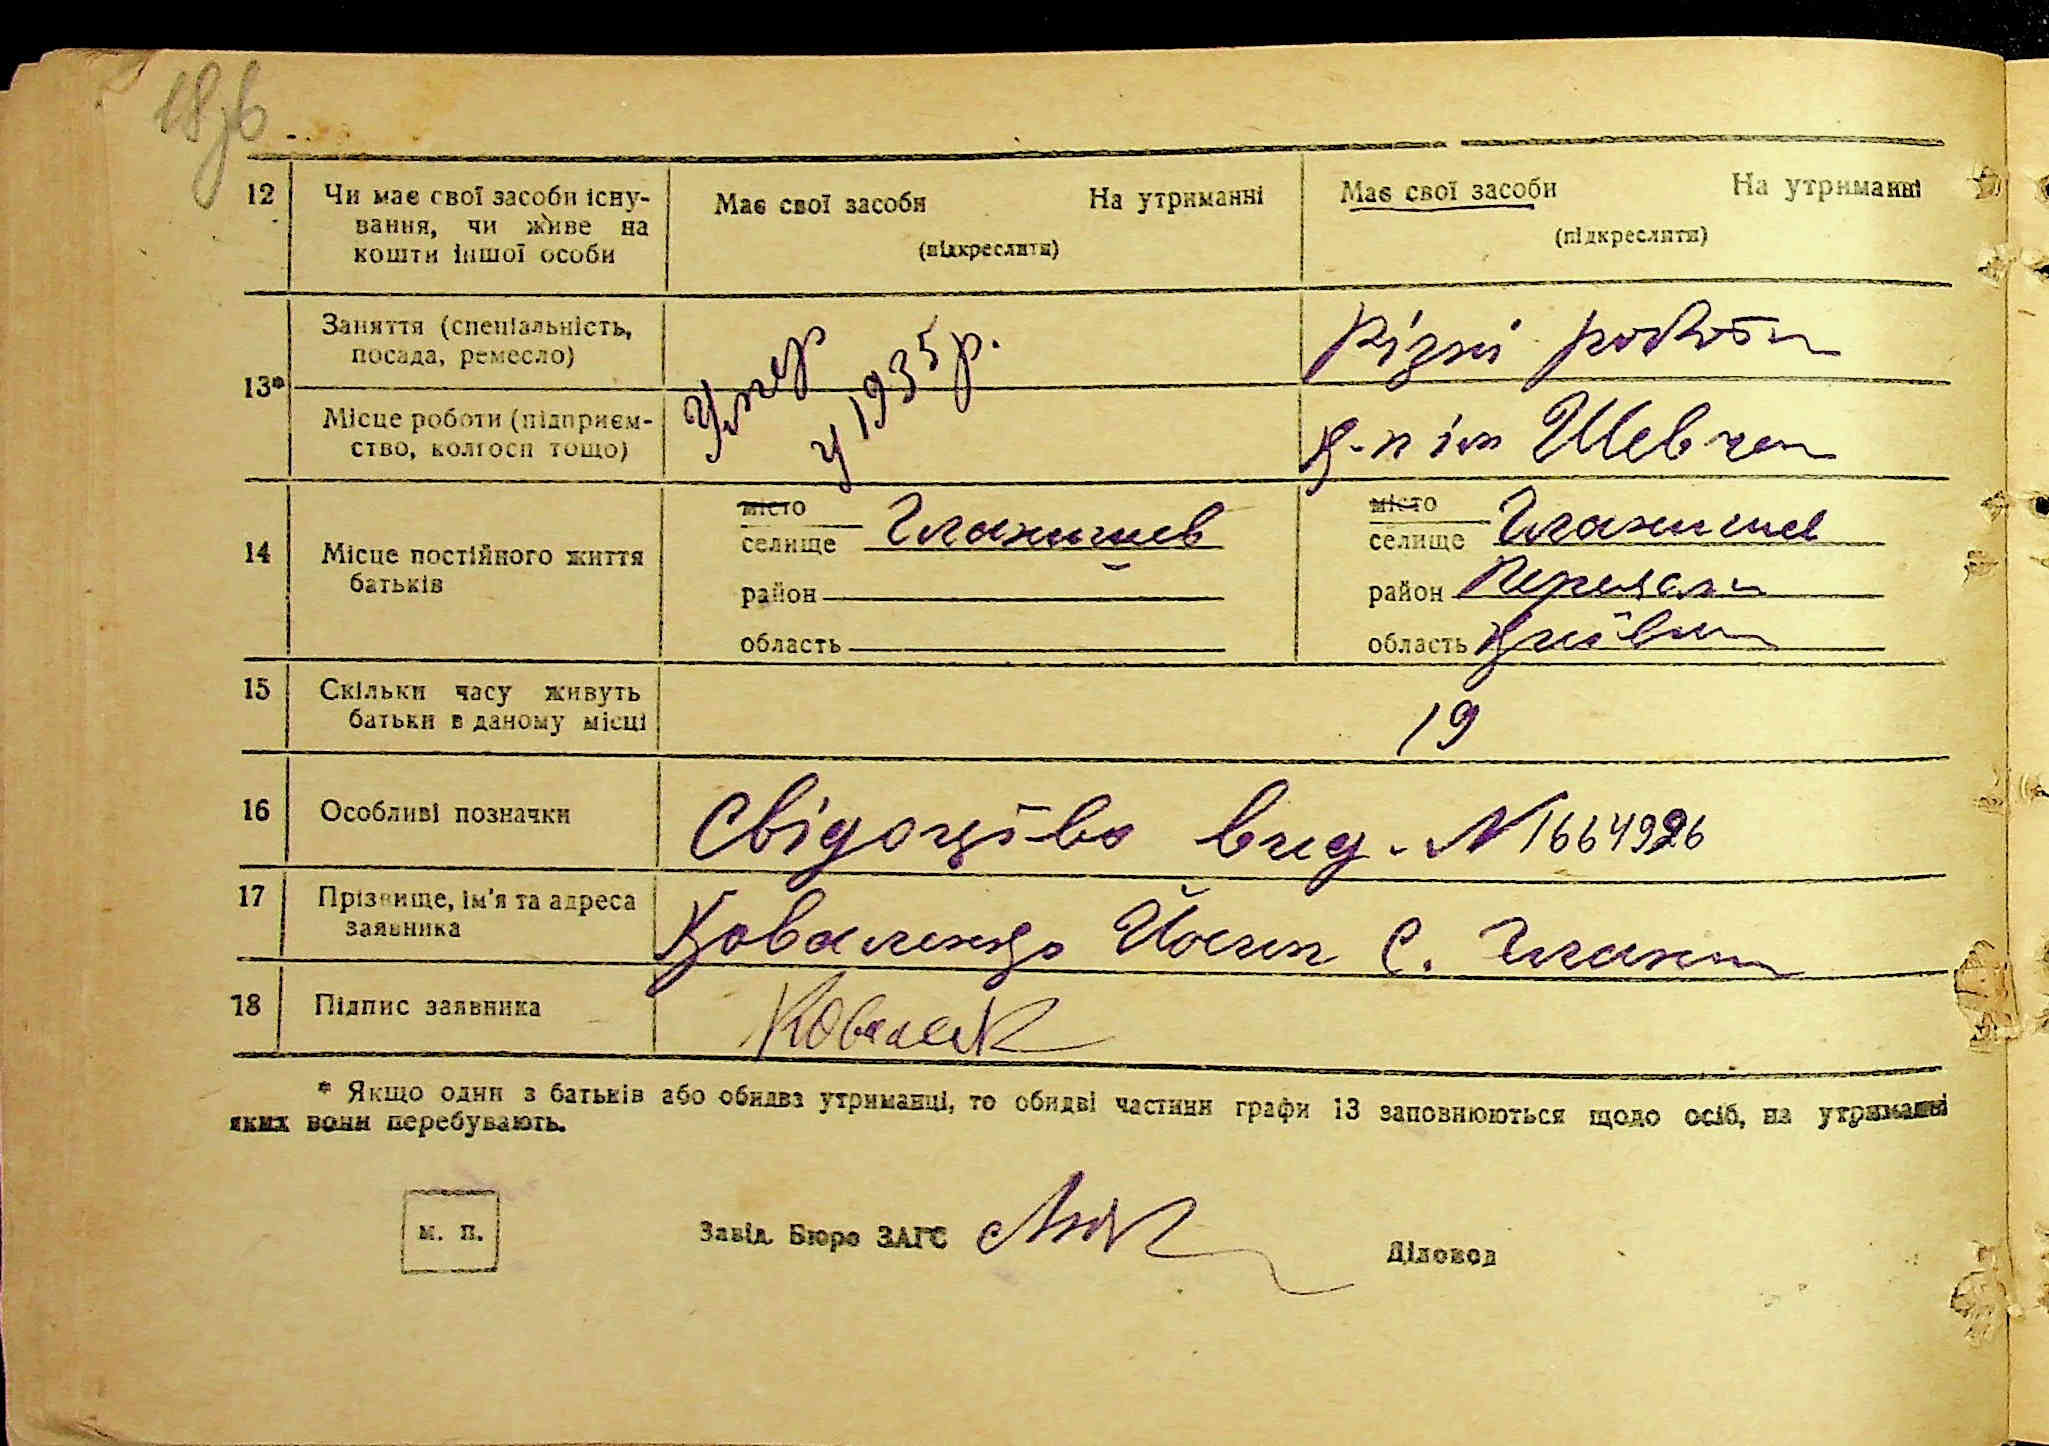 18зб
12 Чи має свої засоби існу- Має свої засоби На утриманні Має свої засоби На утриманні
вання, чи живе на (підкреслити) (підкреслити)
кошти іншої особи
13* Заняття (спеціальність, Умер Різні роботи
посада, ремесло) у 1935 р.
Місце роботи (підприєм- к-п ім Шевчен
ство, колгосп тощо)
14 Місце постійного життя місто місто
батьків селище Гланишев селище Гланишев
район район Переясл
область область Київськ
15 Скільки часу живуть 19
батьки в даному місці
16 Особливі позначки Свідоцтво вид. N 1664926
17 Прізвище, ім'я та адреса Коваленко Йосип С. Гланиш
заявника
18 Підпис заявника Ковален
* Якщо один з батьків або обидва утриманці, то обидві частини графи 13 заповнюються щодо осіб, на утриманні
яких вони перебувають.
М. П. Завід. Бюро ЗАГС Діловод